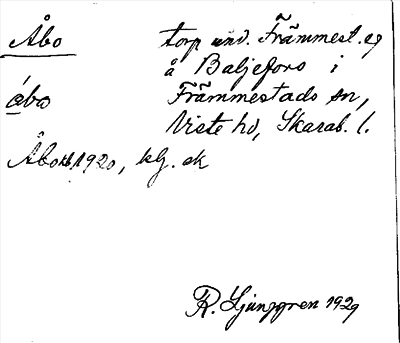 Åbo torp und. Främmest. eg
å Baljefors i
åba Främmestads sn,
Viste hd, Skarab. l.
Åbo 1920, kbj. ek
R. Ljunggren 1929